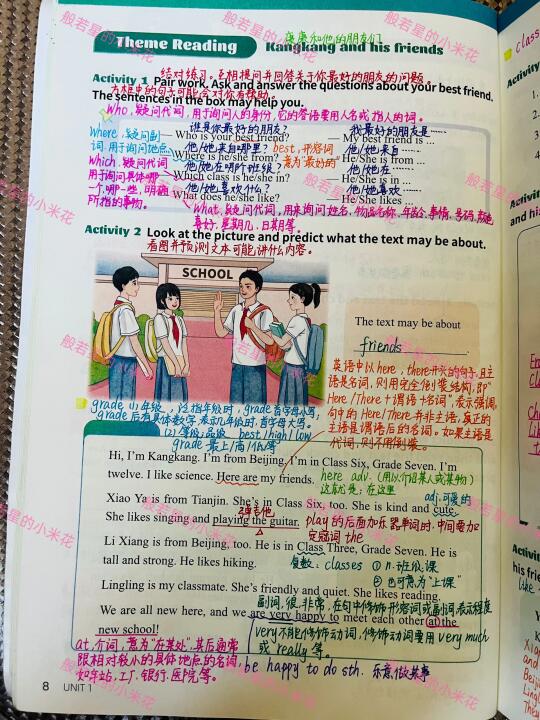 康康和他的朋友们
Theme Reading Kangkang and his friends
结对练习。互相提问并回答关于你最好的朋友的问题
Activity 1 Pair work. Ask and answer the questions about your best friend.
方框中的句子可能会对你有帮助。
The sentences in the box may help you.
Who, 疑问代词,用于询问人的身份,它的答语要用人名或指人的词。
谁是你最好的朋友? 我最好的朋友是……
— Who is your best friend? — My best friend is ...
Where, 疑问副词,用于询问地点
他/她来自哪里? 他/她来自……
— Where is he/she from? — He/She is from ...
best, 形容词 意为"最好的"
他/她在哪个班级? 他/她在……
— Which class is he/she in? — He/She is in ...
Which, 疑问代词 用于询问具体哪一个,哪一些,明确所指的事物。
他/她喜欢什么? 他/她喜欢……
— What does he/she like? — He/She likes ...
What, 疑问代词,用来询问姓名,物品名称,年龄,事情,号码,
喜好,星期几,日期等。
Activity 2 Look at the picture and predict what the text may be about.
看图并预测文本可能讲什么内容。
SCHOOL
The text may be about
friends .
英语中以here, there开头的句子,且主
语是名词,则用完全倒装结构,即"
Here/There+谓语+名词"表示强调,
句中的Here/There并非主语,真正的
主语是谓语后的名词。如果主语是
代词,则不用倒装。
grade, (1)年级,泛指年级时,grade首字母小写,
grade后有具体数字,表示几年级时,首字母大写。
(2)等级;品级 best/high/low
grade 最上/高/低等
Hi, I'm Kangkang. I'm from Beijing. I'm in Class Six, Grade Seven. I'm
twelve. I like science. Here are my friends.
here adv. (用以介绍某人或某物)
这就是;在这里
Xiao Ya is from Tianjin. She's in Class Six, too. She is kind and cute.
adj.可爱的
弹吉他
She likes singing and playing the guitar.
play的后面加乐器单词时,中间要加
定冠词the
Li Xiang is from Beijing, too. He is in Class Three, Grade Seven. He is
tall and strong. He likes hiking.
复数:classes ① n.班级;课
② 也可意为"上课"
Lingling is my classmate. She's friendly and quiet. She likes reading.
副词,很,非常,在句中修饰形容词或副词,表示程度
We are all new here, and we are very happy to meet each other at the
new school!
very不能修饰动词,修饰动词要用very much
或really等。
at, 介词,意为"在某处",其后通常
跟相对较小的具体地点的名词,
如车站,工厂,银行,医院等。
be happy to do sth. 乐意做某事
8 UNIT 1
般若星的小米花